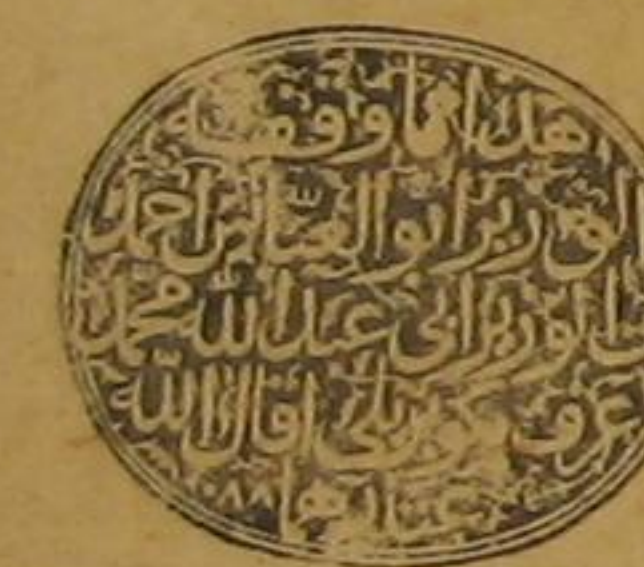 هذا مما وقفه
الوزير ابو العباس احمد
ابن الوزير ابي عبد الله محمد
عرف بكوپريلي اقال الله
عثارهما ١٠٨٨